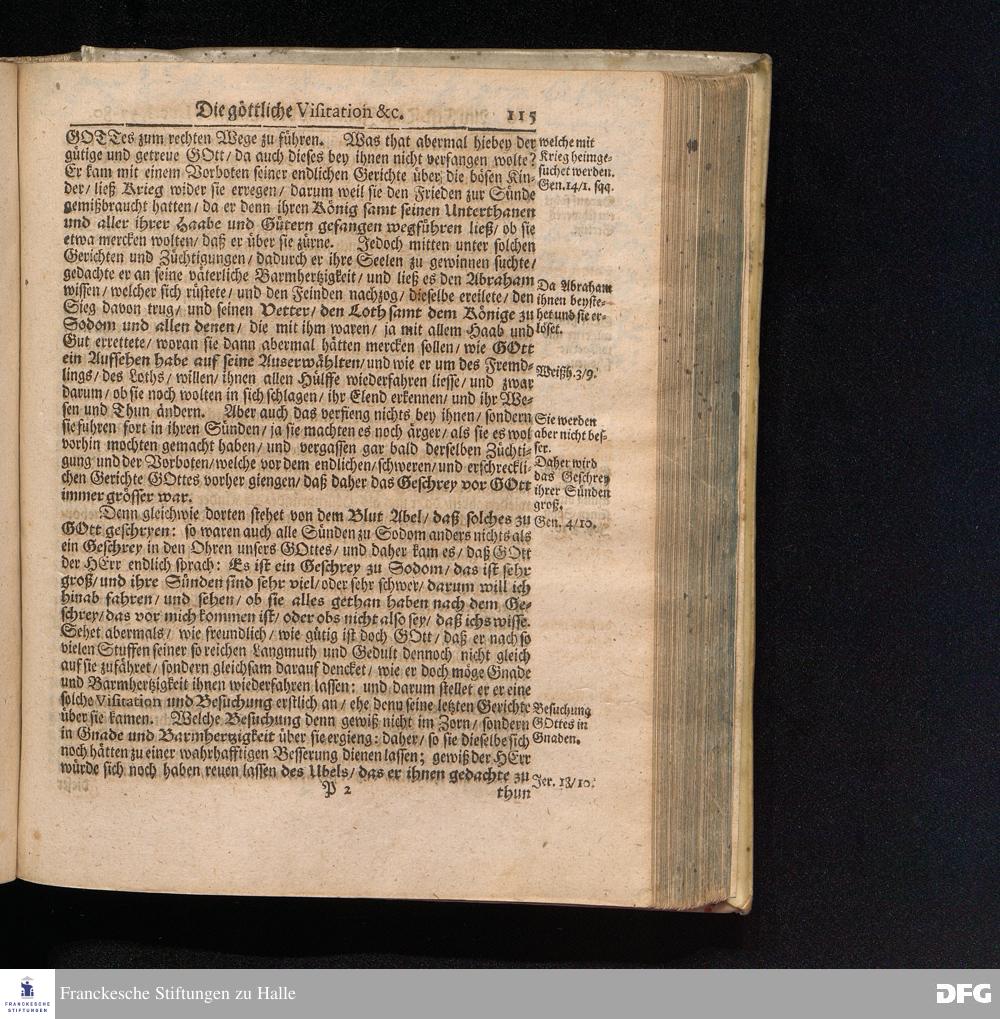 Die göttliche Visitation &c. 115
GOTTes zum rechten Wege zu führen. Was that abermal hiebey der
gütige und getreue GOtt/ da auch dieses bey ihnen nicht verfangen wolte?
Er kam mit einem Vorboten seiner endlichen Gerichte über die bösen Kin-
der/ ließ Krieg wider sie erregen/ darum weil sie den Frieden zur Sünde
gemißbraucht hatten/ da er denn ihren König samt seinen Unterthanen
und aller ihrer Haabe und Gütern gefangen wegführen ließ/ ob sie
etwa mercken wolten/ daß er über sie zürne. Jedoch mitten unter solchen
Gerichten und Züchtigungen/ dadurch er ihre Seelen zu gewinnen suchte/
gedachte er an seine väterliche Barmhertzigkeit/ und ließ es den Abraham
wissen/ welcher sich rüstete/ und den Feinden nachzog/ dieselbe ereilete/ den
Sieg davon trug/ und seinen Vetter/ den Loth samt dem Könige zu
Sodom und allen denen/ die mit ihm waren/ ja mit allem Haab und
Gut errettete/ woran sie dann abermal hätten mercken sollen/ wie GOtt
ein Auffsehen habe auf seine Auserwählten/ und wie er um des Fremd-
lings/ des Loths/ willen/ ihnen allen Hülffe wiederfahren liesse/ und zwar
darum/ ob sie noch wolten in sich schlagen/ ihr Elend erkennen/ und ihr We-
sen und Thun ändern. Aber auch das verfieng nichts bey ihnen/ sondern
sie fuhren fort in ihren Sünden/ ja sie machten es noch ärger/ als sie es wol
vorhin mochten gemacht haben/ und vergassen gar bald derselben Züchti-
gung und der Vorboten/ welche vor dem endlichen/ schweren/ und erschreckli-
chen Gerichte GOttes vorher giengen/ daß daher das Geschrey vor GOtt
immer grösser war.
Denn gleichwie dorten stehet von dem Blut Abel/ daß solches zu
GOtt geschryen: so waren auch alle Sünden zu Sodom anders nichts als
ein Geschrey in den Ohren unsers GOttes/ und daher kam es/ daß GOtt
der HErr endlich sprach: Es ist ein Geschrey zu Sodom/ das ist sehr
groß/ und ihre Sünden sind sehr viel/ oder sehr schwer/ darum will ich
hinab fahren/ und sehen/ ob sie alles gethan haben nach dem Ge-
schrey/ das vor mich kommen ist/ oder obs nicht also sey/ daß ichs wisse.
Sehet abermals/ wie freundlich/ wie gütig ist doch GOtt/ daß er nach so
vielen Stuffen seiner so reichen Langmuth und Gedult dennoch nicht gleich
auf sie zufähret/ sondern gleichsam darauf dencket/ wie er doch möge Gnade
und Barmhertzigkeit ihnen wiederfahren lassen: und darum stellet er er eine
solche Visitation und Besuchung erstlich an/ ehe denn seine letzten Gerichte
über sie kamen. Welche Besuchung denn gewiß nicht im Zorn/ sondern
in Gnade und Barmhertzigkeit über sie ergieng: daher/ so sie dieselbe sich
noch hätten zu einer wahrhafftigen Besserung dienen lassen; gewiß der HErr
würde sich noch haben reuen lassen des Ubels/ das er ihnen gedachte zu
P 2 thun
welche mit
Krieg heimge-
suchet werden.
Gen. 14/1. sqq.
Da Abraham
ihnen beyste-
het und sie er-
löset.
Weißh. 3/9.
Sie werden
aber nicht bes-
ser.
Daher wird
das Geschrey
ihrer Sünden
groß.
Gen. 4/10.
Besuchung
GOttes in
Gnaden.
Jer. 18/10.
FRANCKESCHE
STIFTUNGEN
Franckesche Stiftungen zu Halle
DFG